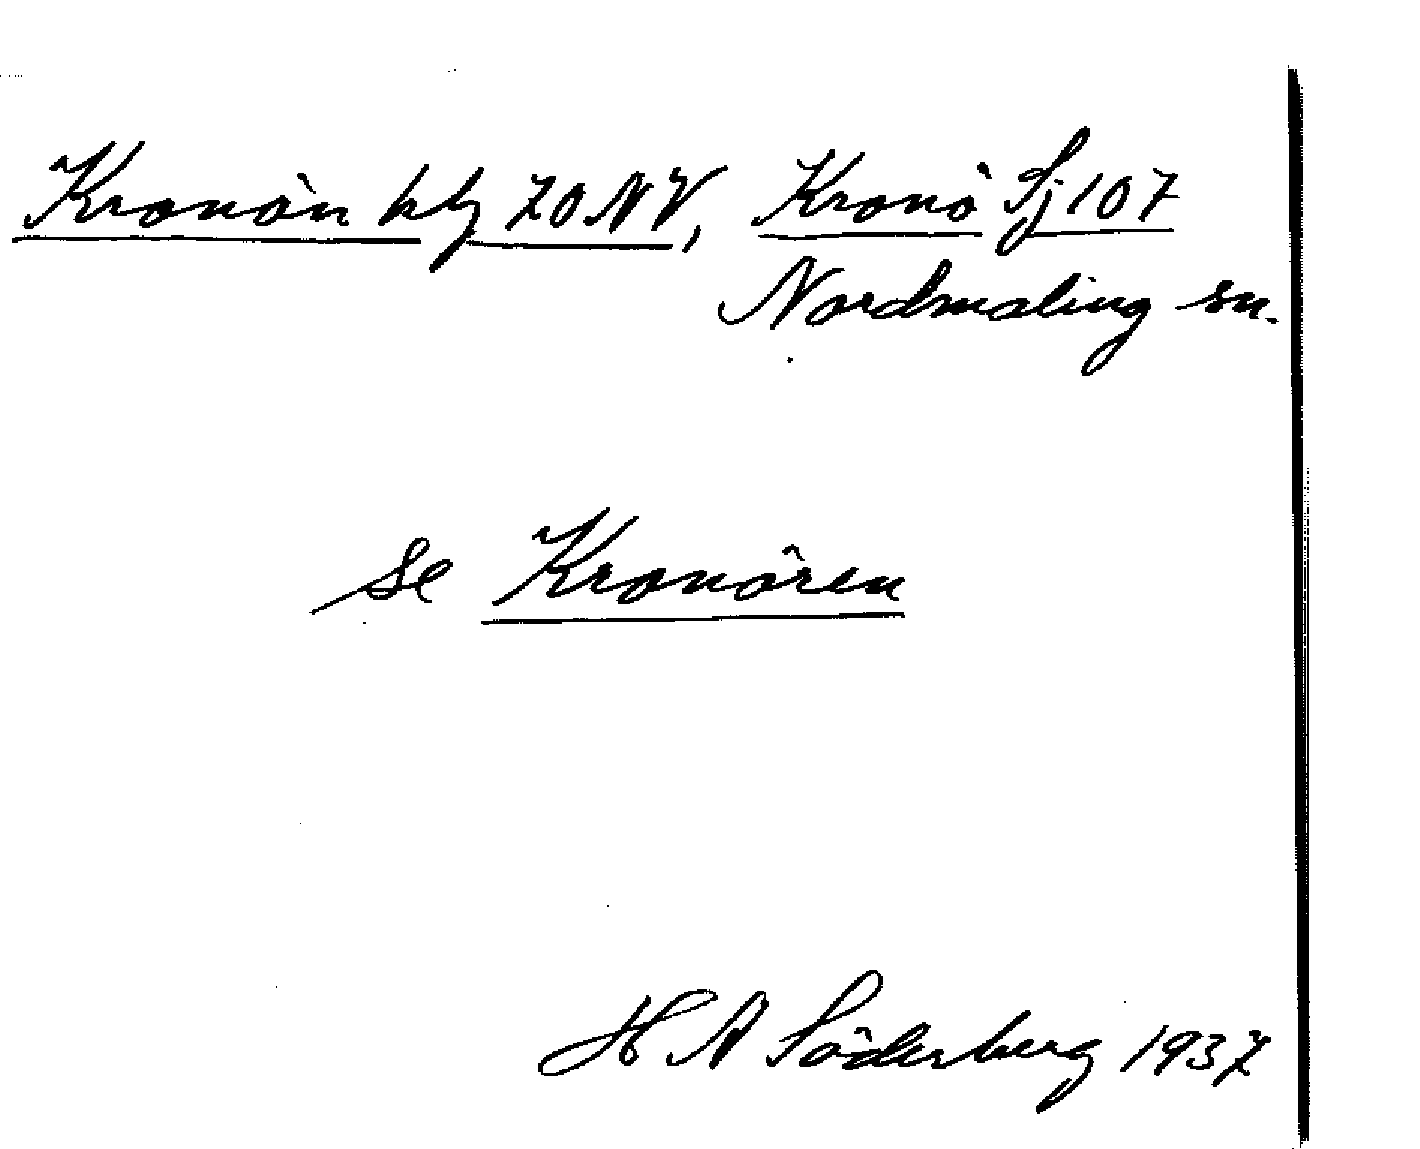 Kronön hbl 70 NV, Kronö Sj 107
Nordmaling sn.
se Kronören
H A Söderberg 1937